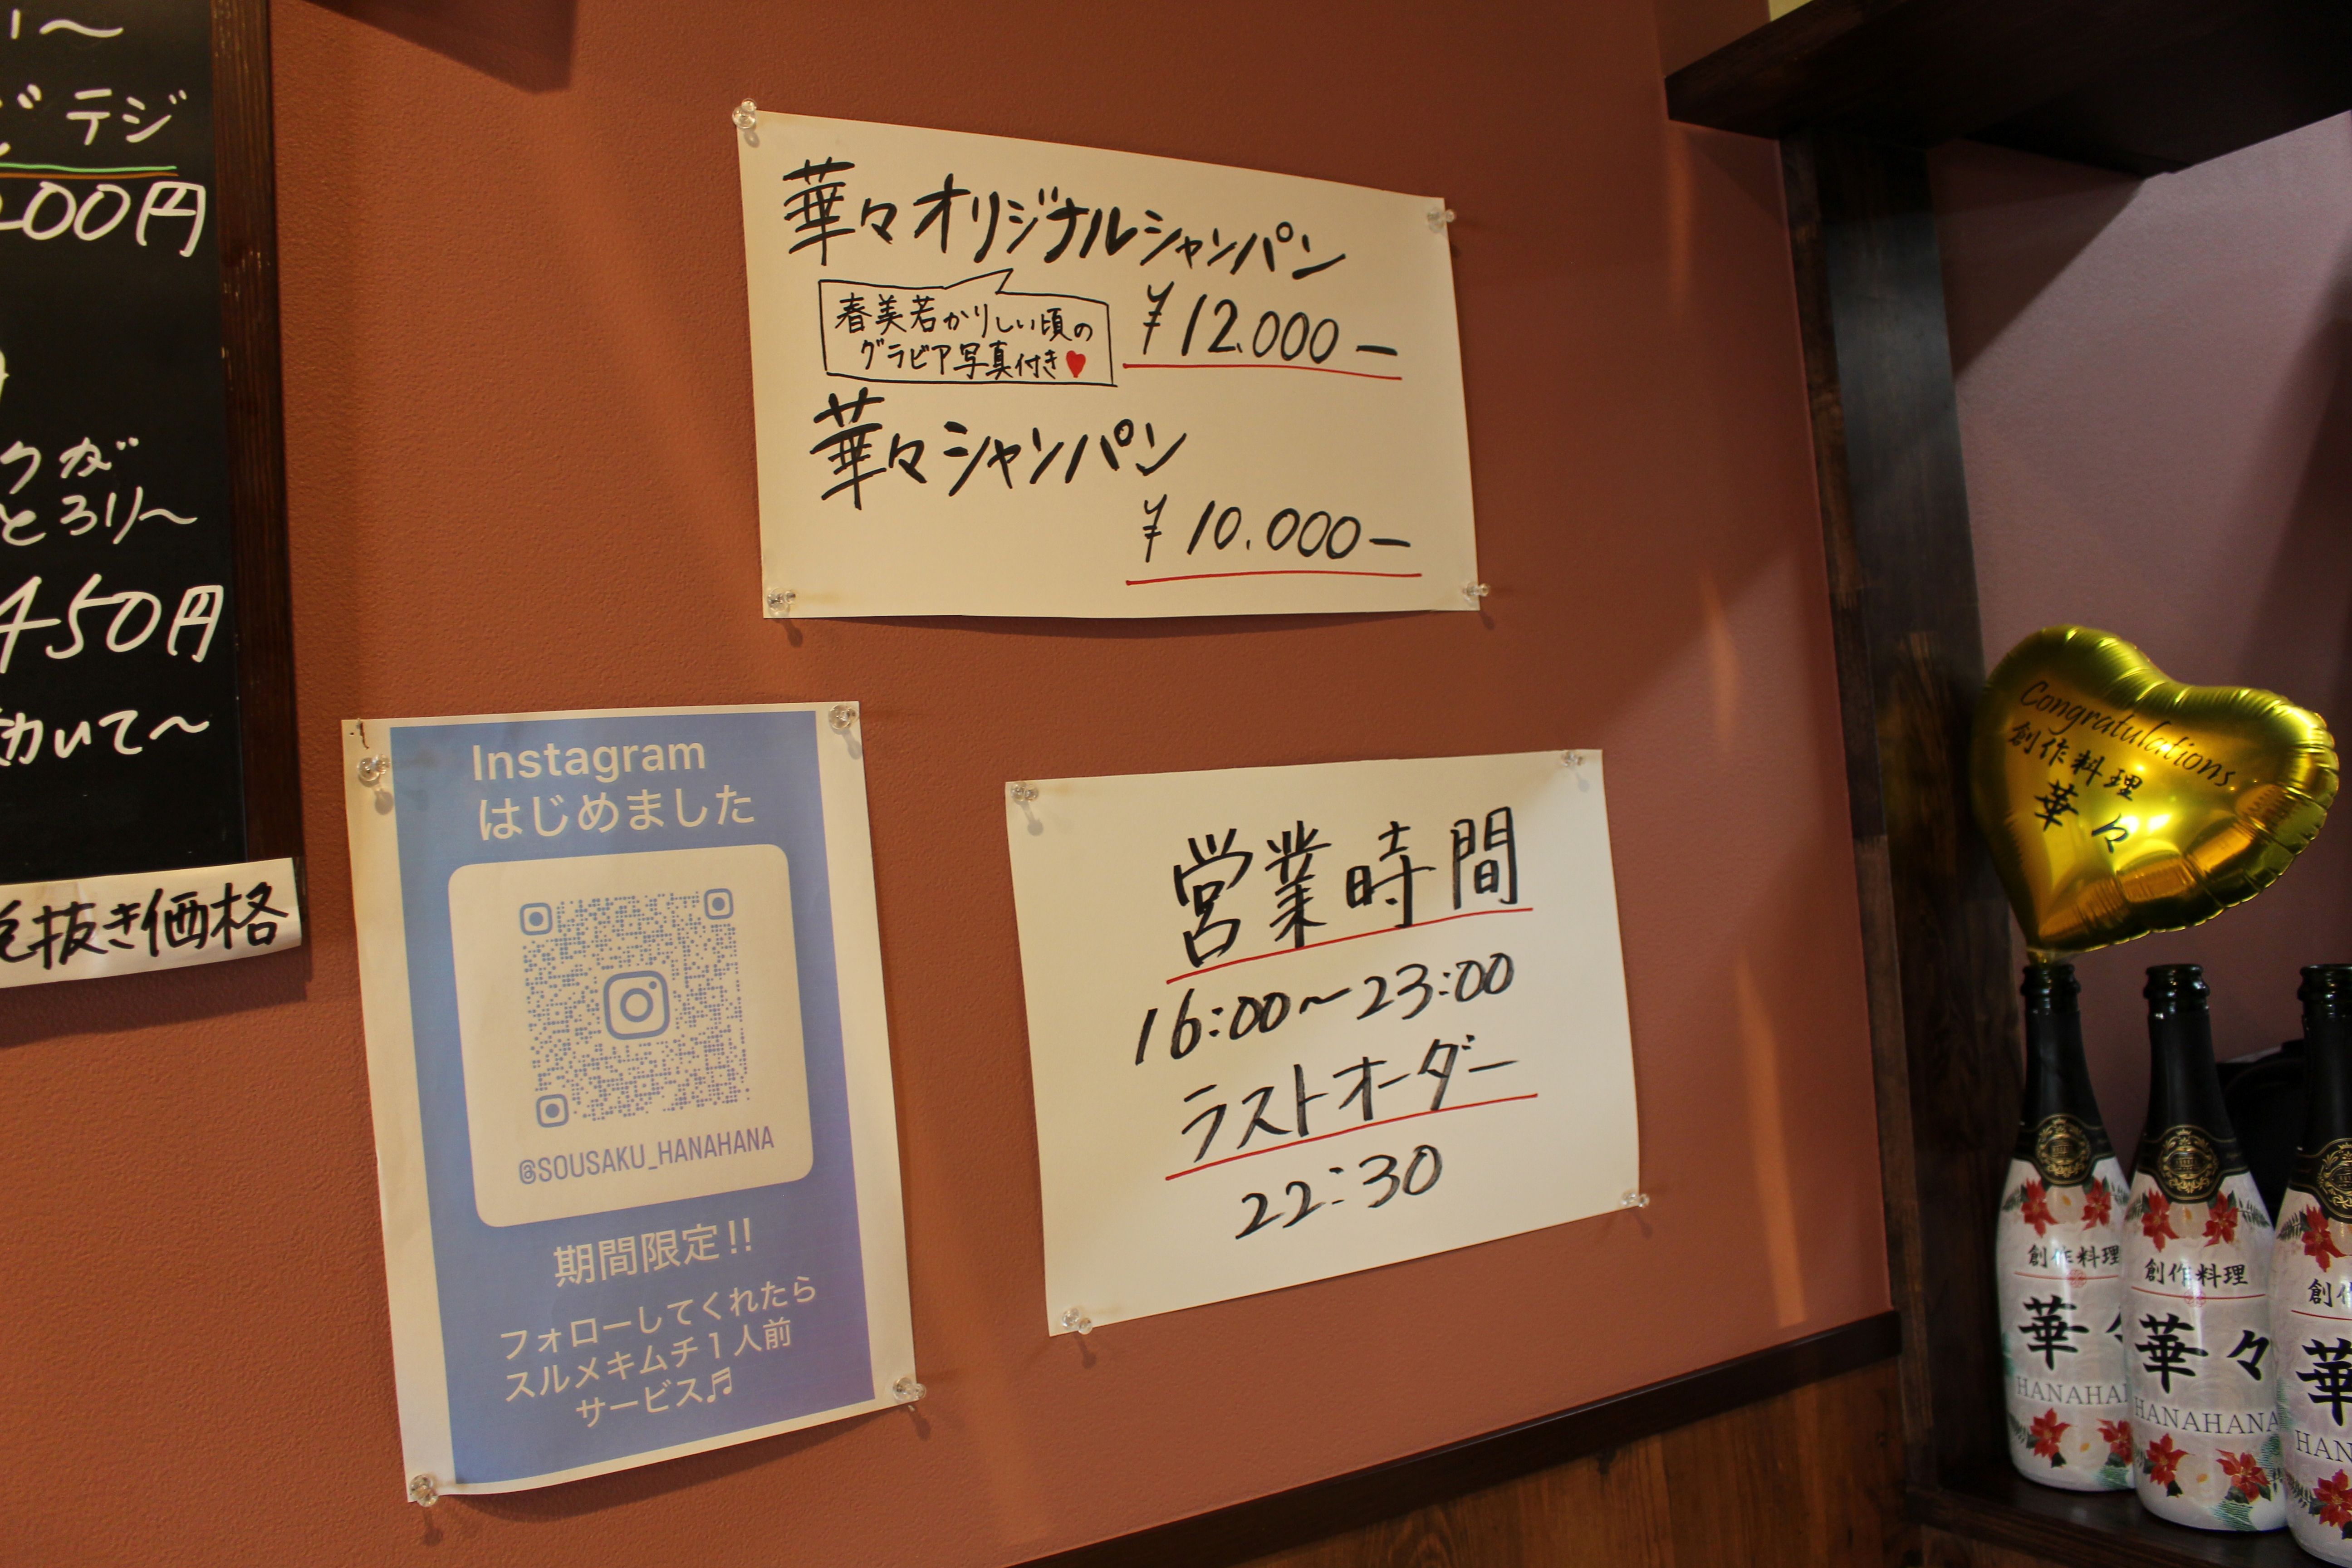 テジ
00円
クが
とろり〜
450円
効いて〜
抜き価格
華々オリジナルシャンパン
春美若かりしい頃の
グラビア写真付き♥
¥12.000ー
華々シャンパン
¥10.000ー
Instagram
はじめました
@SOUSAKU_HANAHANA
期間限定!!
フォローしてくれたら
スルメキムチ1人前
サービス♬
営業時間
16:00〜23:00
ラストオーダー
22:30
Congratulations
創作料理
華々
創作料理
華々
HANAHA
創作料理
華々
HANAHANA
創作
華
HAN